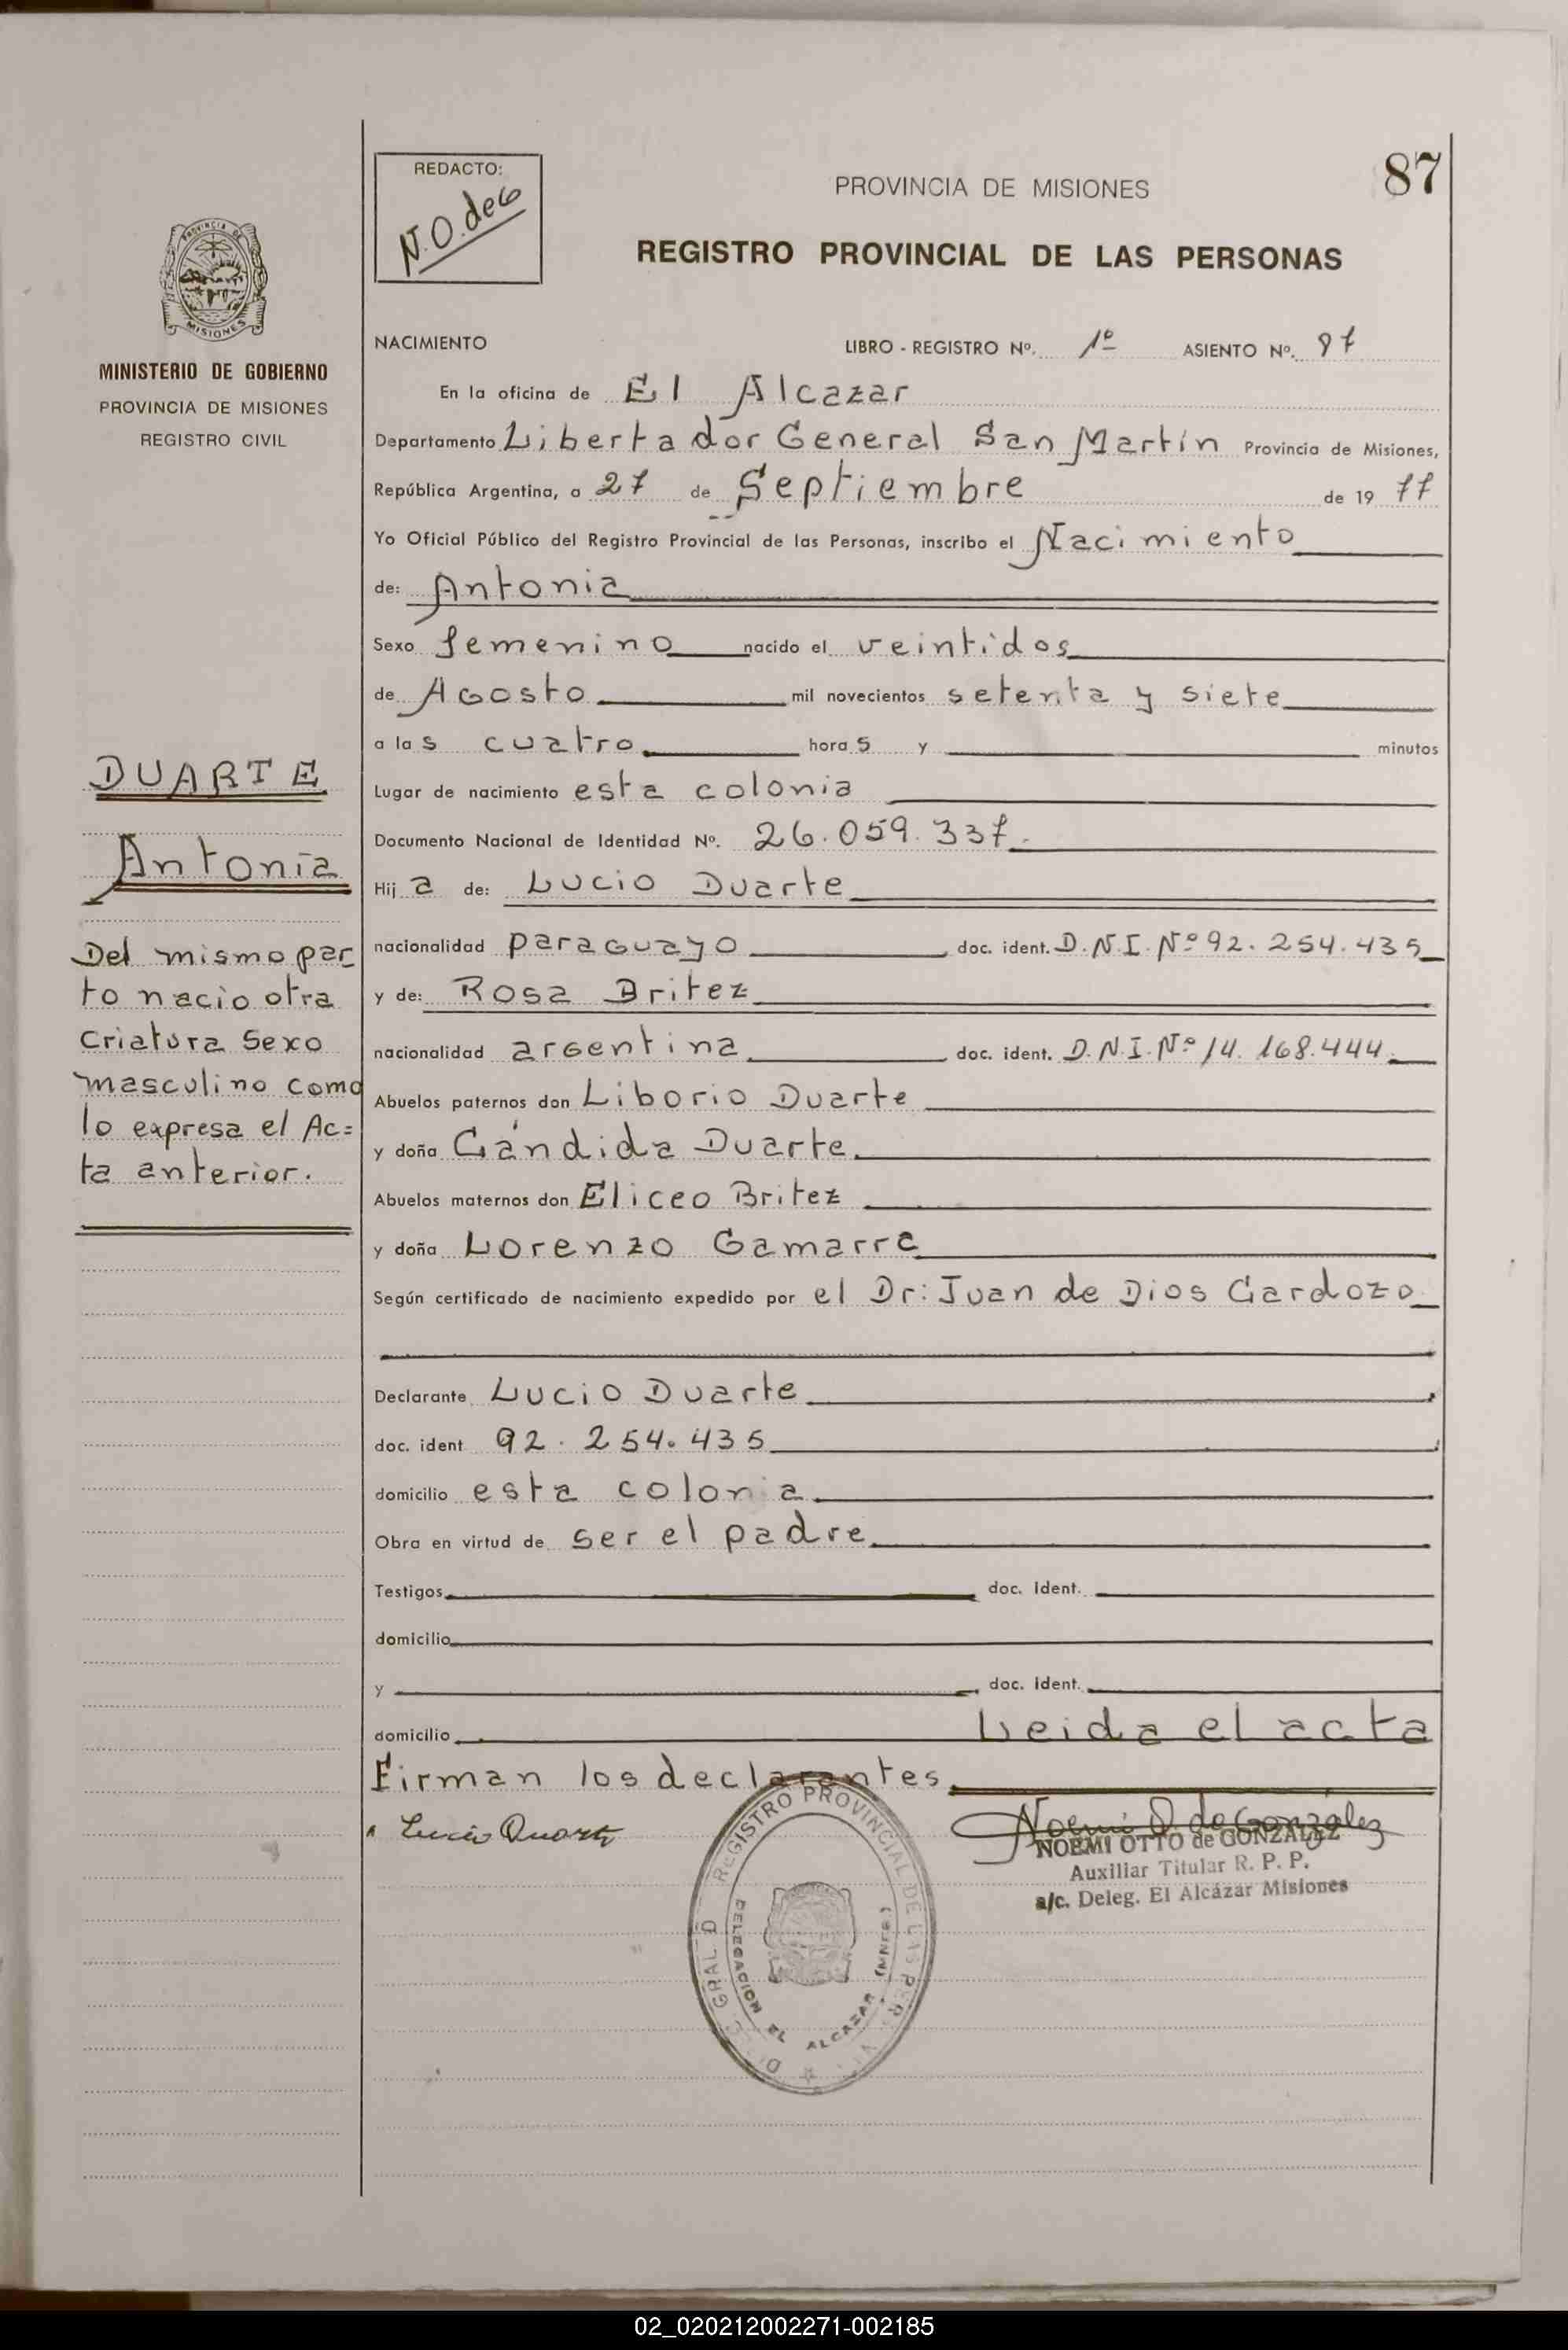 87
REDACTO:
N.O. deG
PROVINCIA DE MISIONES
REGISTRO PROVINCIAL DE LAS PERSONAS
PROVINCIA DE
MISIONES
MINISTERIO DE GOBIERNO
PROVINCIA DE MISIONES
REGISTRO CIVIL
NACIMIENTO LIBRO - REGISTRO Nº. 1º ASIENTO Nº. 87
En la oficina de El Alcazar
Departamento Libertador General San Martín Provincia de Misiones,
República Argentina, a 27 de Septiembre de 19 77
Yo Oficial Público del Registro Provincial de las Personas, inscribo el Nacimiento
de: Antonia
Sexo femenino nacido el veintidos
de Agosto mil novecientos setenta y siete
a las cuatro horas y minutos
Lugar de nacimiento esta colonia
Documento Nacional de Identidad Nº. 26.059.337.
Hija de: Lucio Duarte
nacionalidad paraguayo doc. ident. D.N.I. Nº 92.254.435
y de: Rosa Britez
nacionalidad argentina doc. ident. D.N.I. Nº 14.168.444.
Abuelos paternos don Liborio Duarte
y doña Cándida Duarte
Abuelos maternos don Eliceo Britez
y doña Lorenzo Gamarra
Según certificado de nacimiento expedido por el Dr: Juan de Dios Cardozo
Declarante Lucio Duarte
doc. ident 92.254.435
domicilio esta colonia
Obra en virtud de ser el padre
Testigos doc. ident.
domicilio
y doc. ident.
domicilio Leida el acta
Firman los declarantes
DUARTE
Antonia
Del mismo par
to nacio otra
criatura sexo
masculino como
lo expresa el Ac=
ta anterior.
Lucio Duarte
Noemi O. de González
NOEMI OTTO de GONZALEZ
Auxiliar Titular R. P. P.
a/c. Deleg. El Alcázar Misiones
REGISTRO PROVINCIAL DE LAS
DELEGACION EL ALCAZAR (MNES.)
02_020212002271-002185